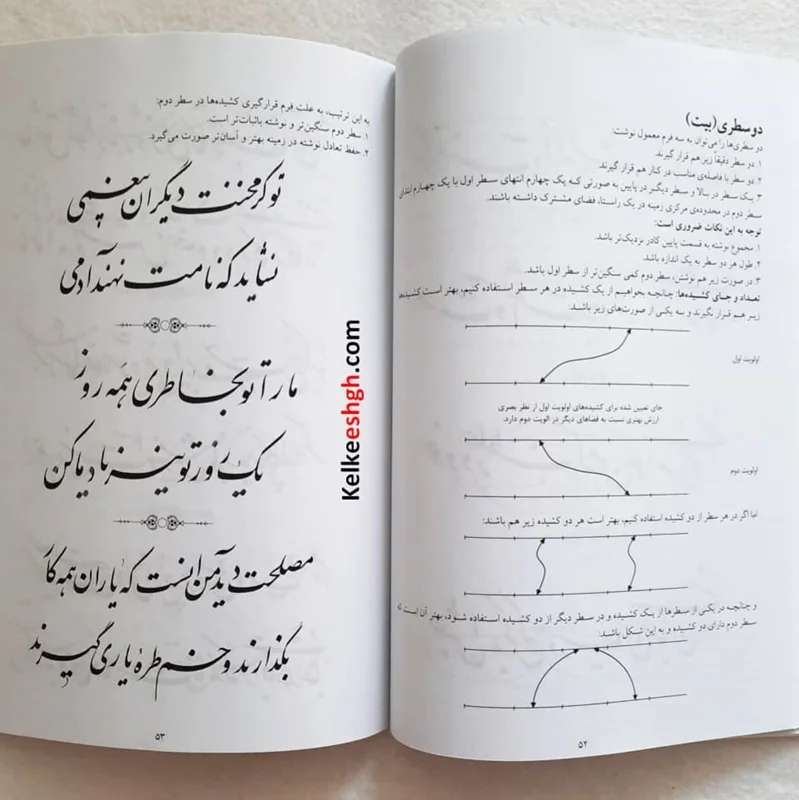 دو سطری(بیت)
دو سطری‌ها را می‌توان به سه فرم معمول نوشت:
۱. دو سطر دقیقاً زیر هم قرار گیرند.
۲. دو سطر با فاصله‌ی مناسب در کنار هم قرار گیرند.
۳. یک سطر در بالا و سطر دیگر در پایین به صورتی که یک چهارم انتهای سطر اول با یک چهارم ابتدای
سطر دوم در محدوده‌ی مرکزی زمینه در یک راستا، فضای مشترک داشته باشند.
توجه به این نکات ضروری است:
۱. مجموع نوشته به قسمت پایین کادر نزدیک‌تر باشد.
۲. طول هر دو سطر به یک اندازه باشد.
۳. در صورت زیر هم نوشتن، سطر دوم کمی سنگین‌تر از سطر اول باشد.
تعداد و جای کشیده‌ها: چنانچه بخواهیم از یک کشیده در هر سطر استفاده کنیم، بهتر است کشیده‌ها
زیر هم قرار نگیرند و سه یکی از صورت‌های زیر باشد:
اولویت اول
جای تعیین شده برای کشیده‌های اولویت اول از نظر بصری
ارزش بهتری نسبت به فضاهای دیگر در الویت دوم دارد.
اولویت دوم
اما اگر در هر سطر از دو کشیده استفاده کنیم، بهتر است هر دو کشیده زیر هم باشند:
و چنانچه در یکی از سطرها از یک کشیده و در سطر دیگر از دو کشیده استفاده شود، بهتر آن است که
سطر دوم دارای دو کشیده و به این شکل باشد:
۵۲
به این ترتیب، به علت فرم قرارگیری کشیده‌ها در سطر دوم:
۱. سطر دوم سنگین‌تر و نوشته باثبات‌تر است.
۲. حفظ تعادل نوشته در زمینه بهتر و آسان‌تر صورت می‌گیرد.
تو کز محنت دیگران بیغمی
نشاید که نامت نهند آدمی
ما را تو بخاطری همه روز
یک روز تو نیز یاد ما کن
مصلحت دید من انست که یاران همه کار
بگذارند و خم طرهٔ یاری گیرند
۵۳
Kelkeeshgh.com